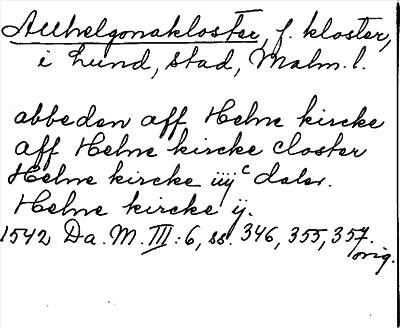 Allhelgonakloster, f. kloster,
i Lund, stad, Malm. l.
abbeden aff Helne kircke
aff Helne kircke closter
Helne kircke iiijc daler.
Helne kircke ij.
1542 Da. M. III: 6, ss. 346, 355, 357.
orig.